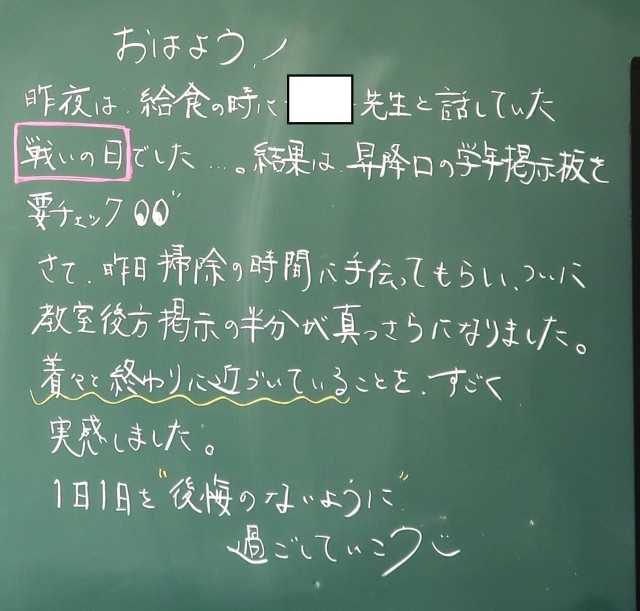 おはよう!
昨夜は、給食の時に 先生と話していた
戦いの日でした…。結果は、昇降口の学年掲示板を
要チェック
さて、昨日掃除の時間に手伝ってもらい、ついに
教室後方掲示の半分が真っさらになりました。
着々と終わりに近づいていることを、すごく
実感しました。
1日1日を"後悔のないように"
過ごしていこう